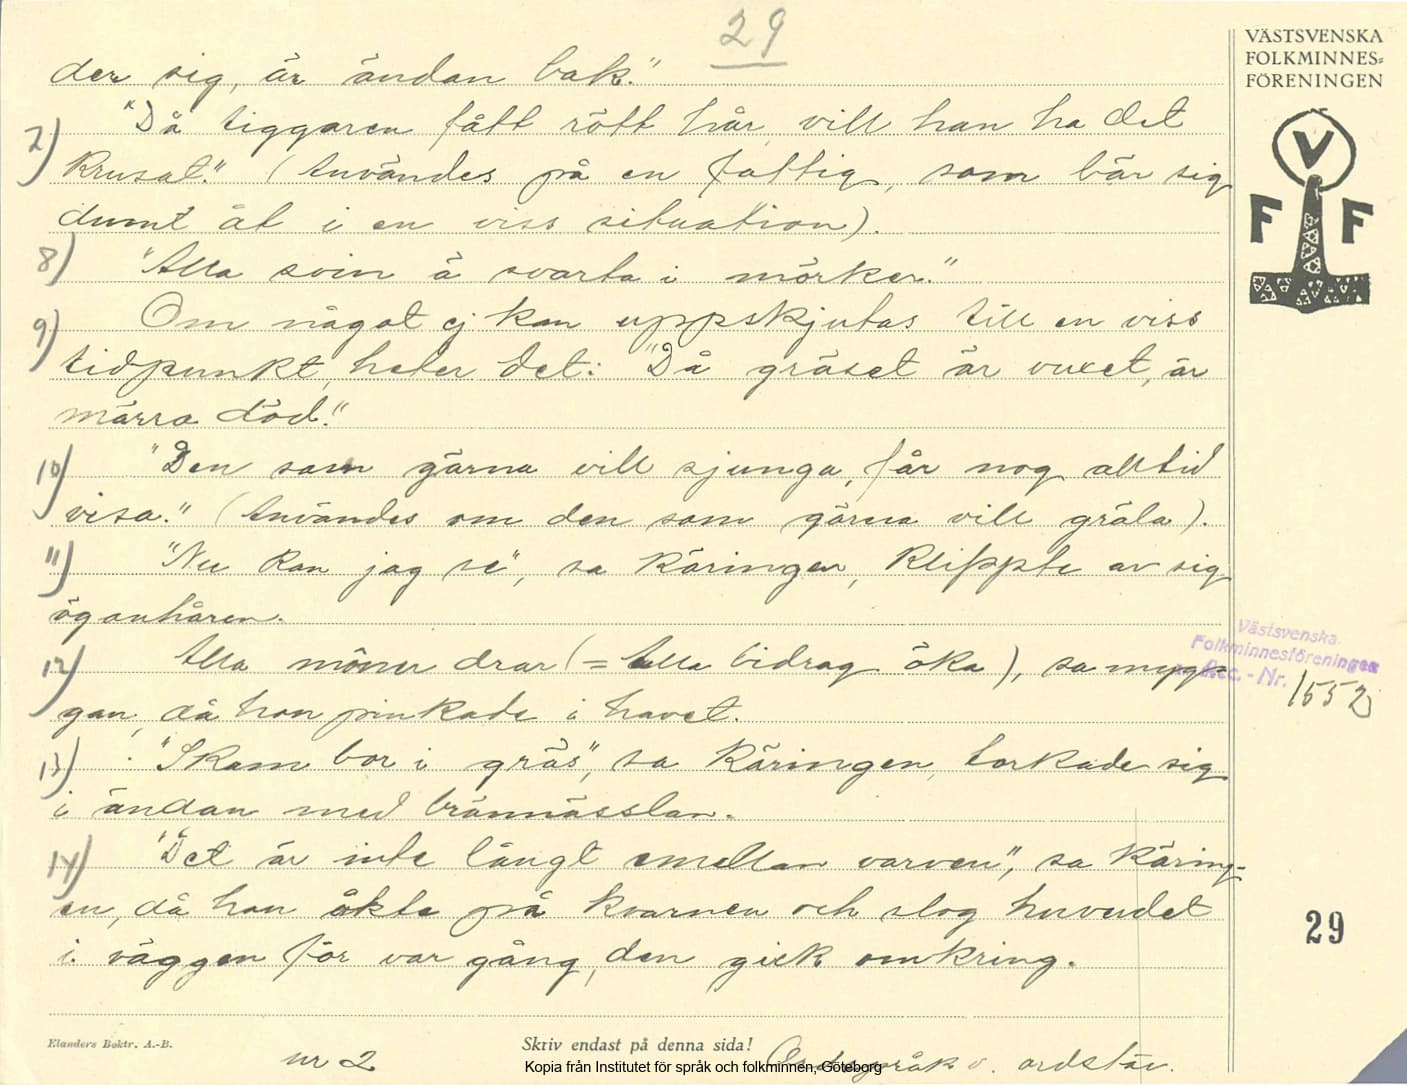 29
VÄSTSVENSKA
FOLKMINNES=
FÖRENINGEN
V
F F
der sig, är ändan bak."
7) "Då tiggaren fått rött hår, vill han ha det
krusat." (Användes på en fattig, som bär sig
dumt åt i en viss situation).
8) "Alla svin ä svarta i mörker."
9) Om något ej kan uppskjutas till en viss
tidpunkt, heter det: "Då gräset är vuxet, är
märra död."
10) "Den som gärna vill sjunga, får nog alltid
visa." (Användes om den som gärna vill gräla).
11) "Nu kan jag se", sa käringen, klippte av sig
öganhåren.
12) Alla möner drar (= Alla bidrag öka), sa myg-
gan, då hon pinkade i havet.
13) "Skam bor i gräs", sa käringen, torkade sig
i ändan med brännässlan.
14) "Det är inte långt emellan varven", sa käring-
en, då hon åkte på kvarnen och slog huvudet
i väggen för var gång, den gick omkring.
Västsvenska
Folkminnesföreningen
Acc.-Nr. 1552
29
Elanders Boktr. A.-B.
Skriv endast på denna sida!
nr 2
Ordspråk o. ordstäv.
Kopia från Institutet för språk och folkminnen, Göteborg